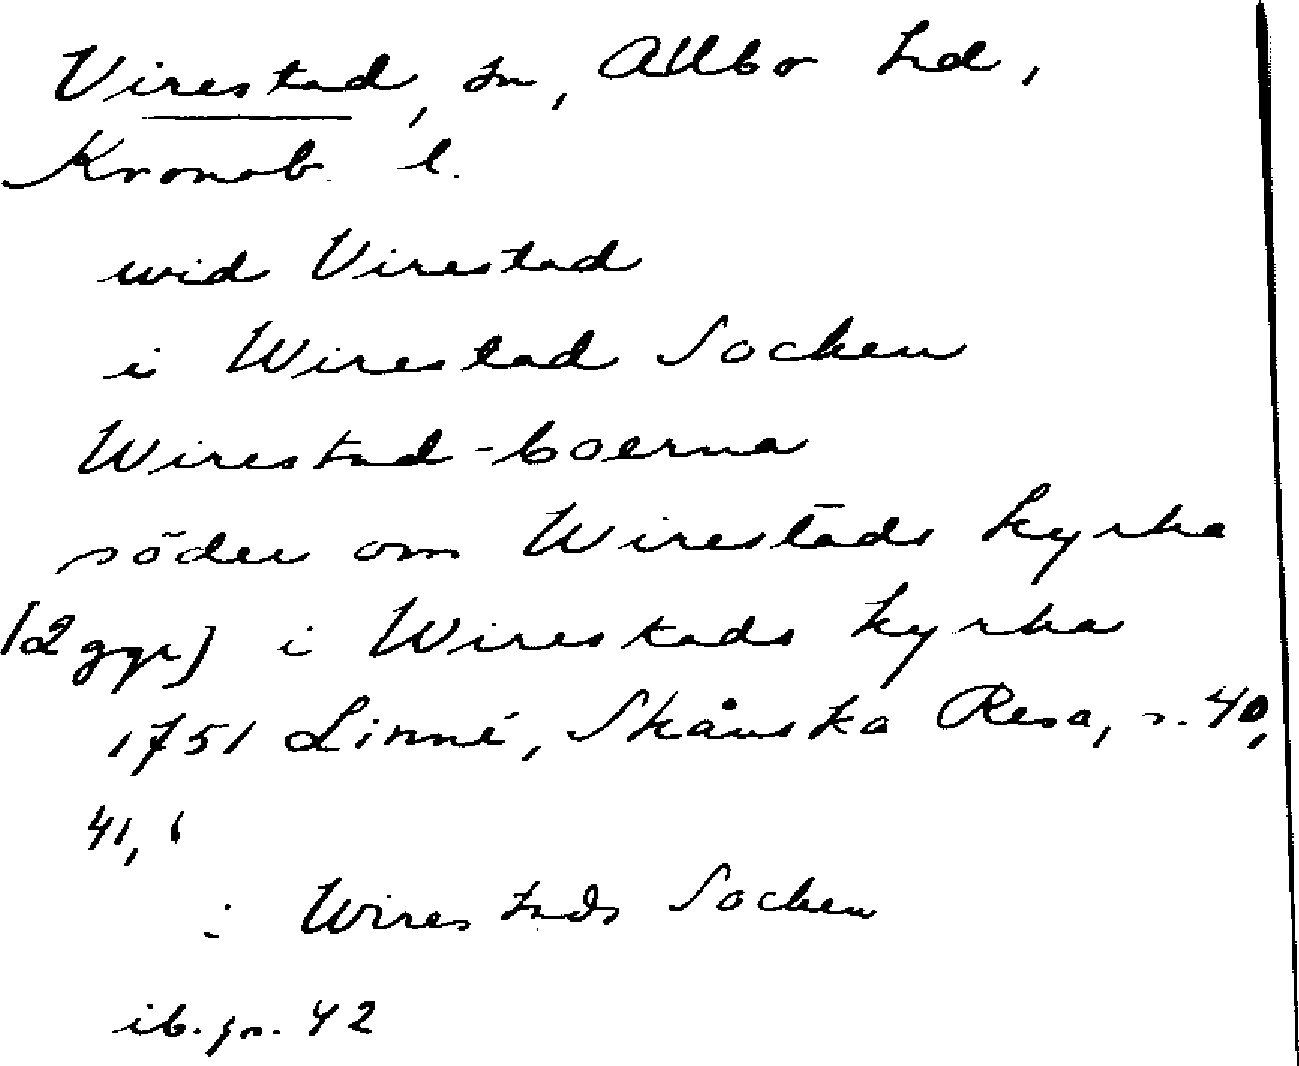 Virestad, sn, Allbo hd,
Kronob. l.
wid Virestad
i Wirestad Socken
Wirestad-boerna
söder om Wirestads kyrka
[2 ggr] i Wirestads kyrka
1751 Linné, Skånska Resa, s. 40,
41,
i Wirestads Socken
ib. s. 42